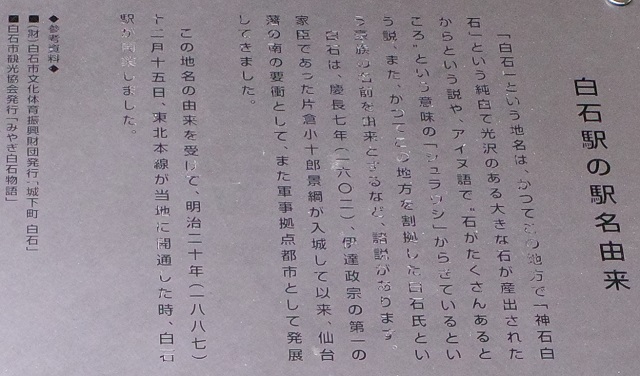 白石駅の駅名由来
「白石」という地名は、かつてこの地方で「神石白
石」という純白で光沢のある大きな石が産出された
からという説や、アイヌ語で"石がたくさんあると
ころ"という意味の「シュラウシ」からきているとい
う説、また、かつてこの地方を割拠した白石氏とい
う豪族の名前を由来とするなど、諸説があります
白石は、慶長七年(一六〇二)、伊達政宗の第一の
家臣であった片倉小十郎景綱が入城して以来、仙台
藩の南の要衝として、また軍事拠点都市として発展
してきました。
この地名の由来を受けて、明治二十年(一八八七)
十二月十五日、東北本線が当地に開通した時、白石
駅が開業しました。
◆参考資料◆
■(財)白石市文化体育振興財団発行「城下町 白石」
■白石市観光協会発行「みやぎ白石物語」